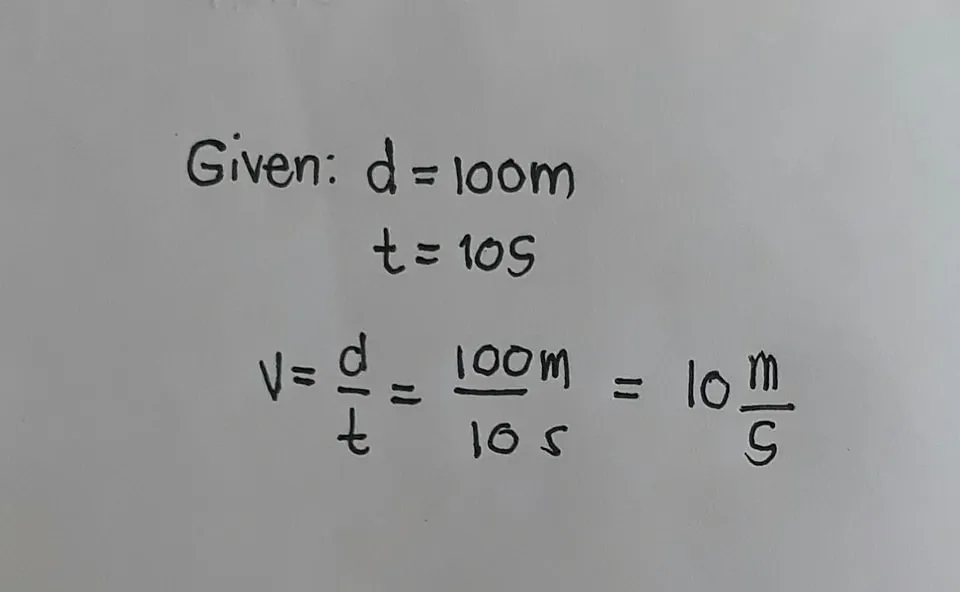 Given: d = 100m
t = 10s
V = d/t = 100m/10 s = 10 m/s